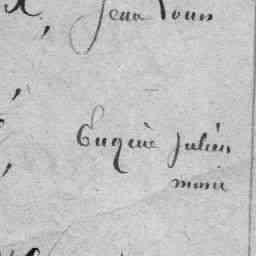 Jean Louis
Eugène Julien
marie